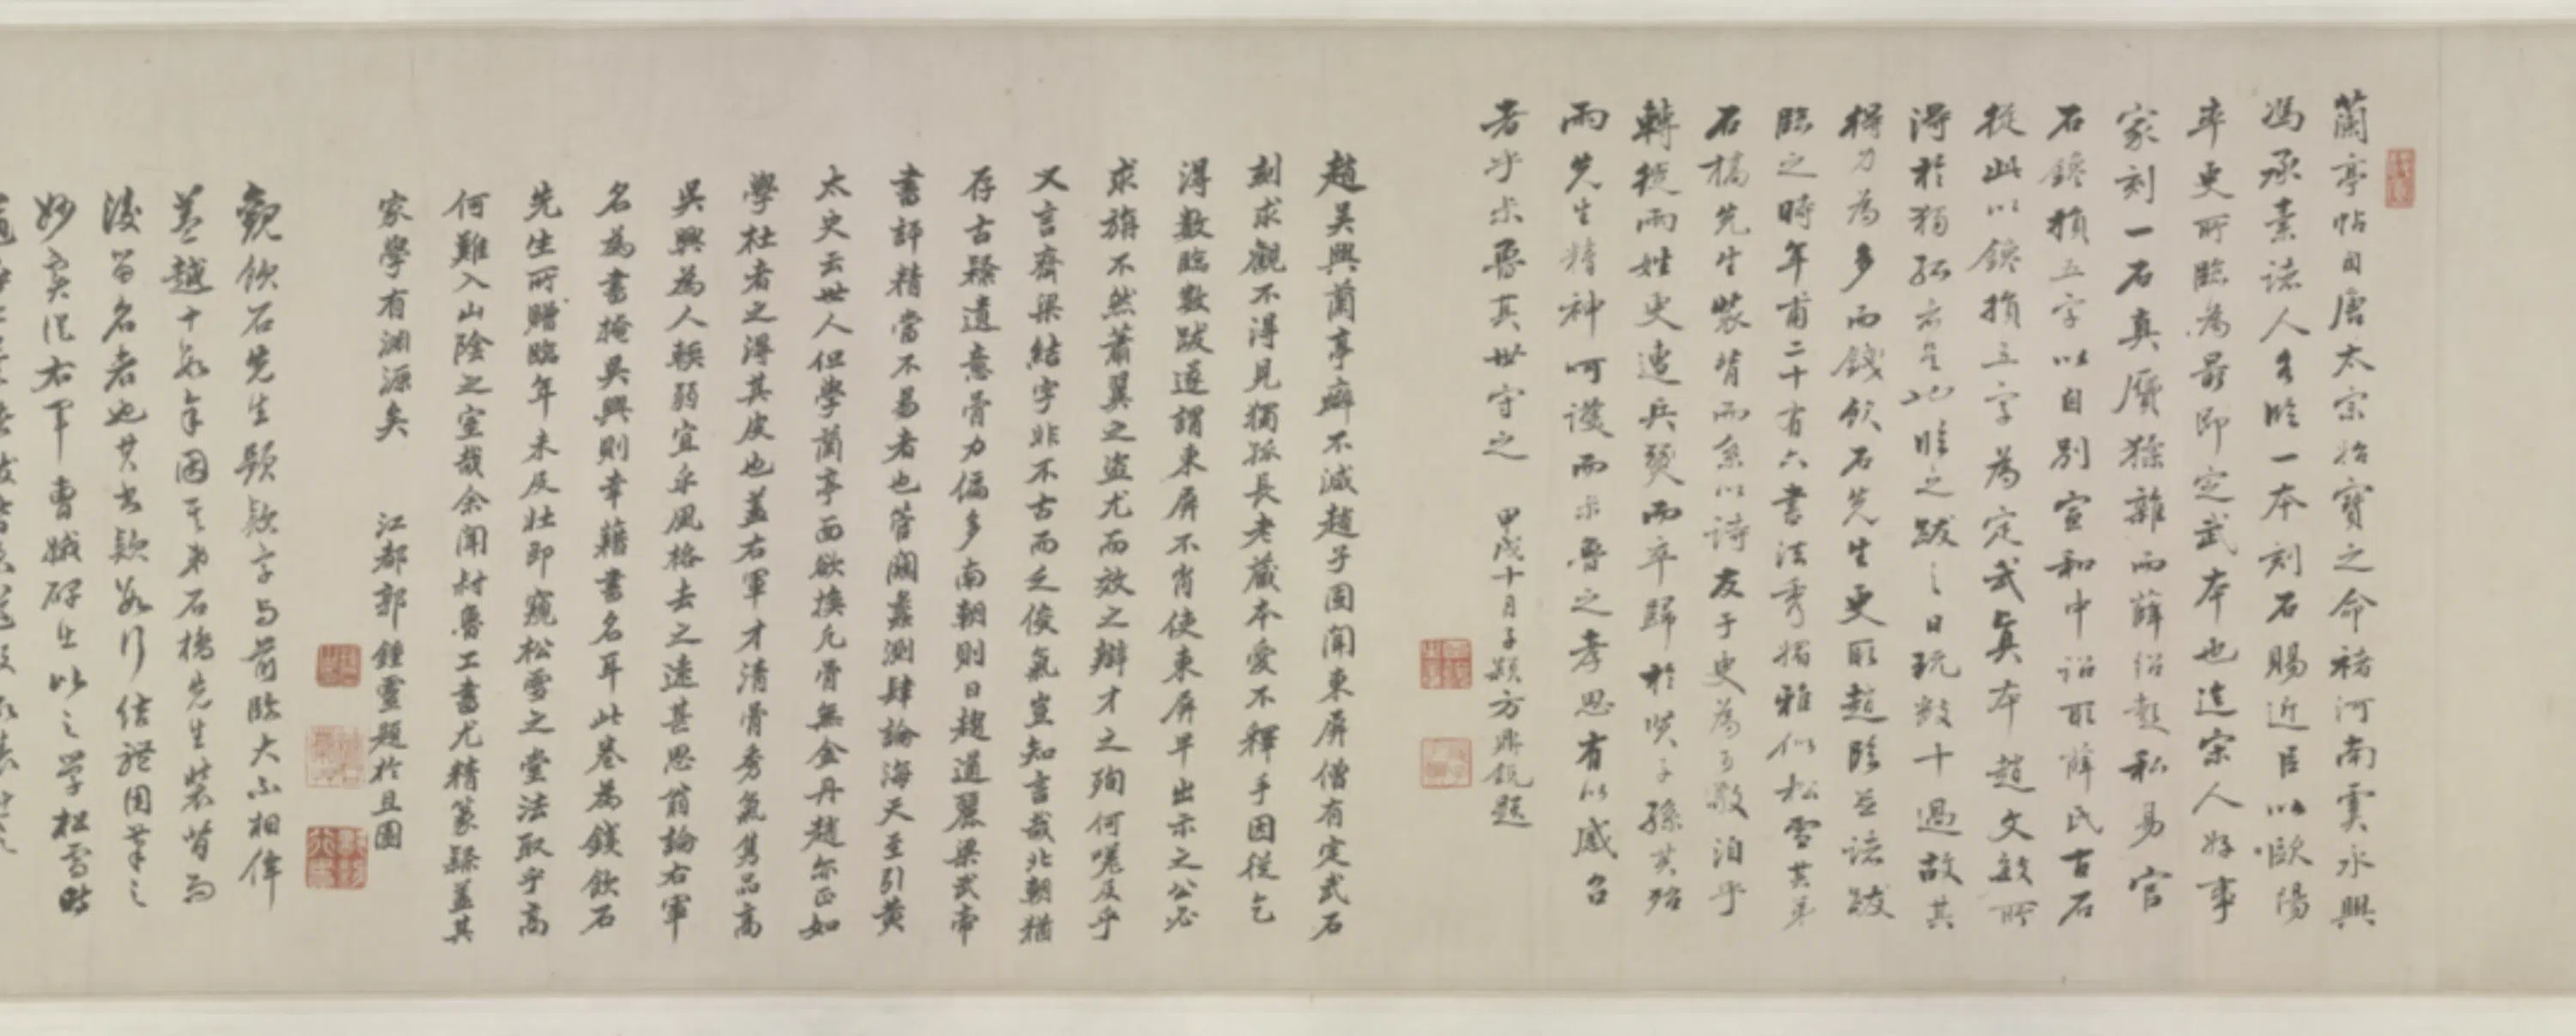 蘭亭帖自唐太宗招寶之命褚河南虞永興
馮承素諸人各臨一本刻石賜近臣以歐陽
率更所臨為最即定武本也迨宋人好事
家刻一石真贋殽雜而薛紹彭私易官
石鐫損五字以自別宣和中詔取薛氏古石
從此以鐫損五字為定武真本趙文敏所
得於獨孤者是也臨之跋之日玩數十過故其
得力為多而錢飲石先生更取趙臨並諸跋
臨之時年甫二十有六書法秀獨雅似松雪其弟
石橋先生裝背而系以詩友于史為可敬洎乎
轉徙兩姓更遭兵燹而卒歸於賢子孫其殆
兩先生精神呵護而示魯之孝思有以感召
者乎示魯其世守之 甲戌十月子 方鼎銳題
趙吳興蘭亭癖不減趙子固聞東屏僧有定武石
刻求觀不得見獨孤長老藏本愛不釋手因從乞
得數臨數跋遂謂東屏不肯使東屏早出示之公必
求旃不然蕭翼之盜尤而放之辯才之殉何嗟及乎
又言齊梁結字非不古而乏俊氣豈知言哉北朝猶
存古隸遺意骨力偏多南朝則日趨遒麗梁武帝
書評精當不易者也管闚蠡測肆論海天至引黃
太史云世人但學蘭亭面欲換凡骨無金丹趙亦正如
學杜者之得其皮也蓋右軍才清骨秀氣雋品高
吳興為人輭弱宜乎風格去之遠甚思翁論右軍
名為書掩吳興則幸藉書名耳此卷為錢飲石
先生所贈臨年未及壯即窺松雪之堂法取乎高
何難入山陰之室哉余聞村魯工書尤精篆隸蓋其
家學有淵源矣 江都郭鍾靈題於且園
觀飲石先生題款字與前臨大不相侔
蓋越十數年因其弟石橋先生裝背而
後習名者也其書款數行結體用筆之
妙實從右軍曹娥碑出以之學松雪時